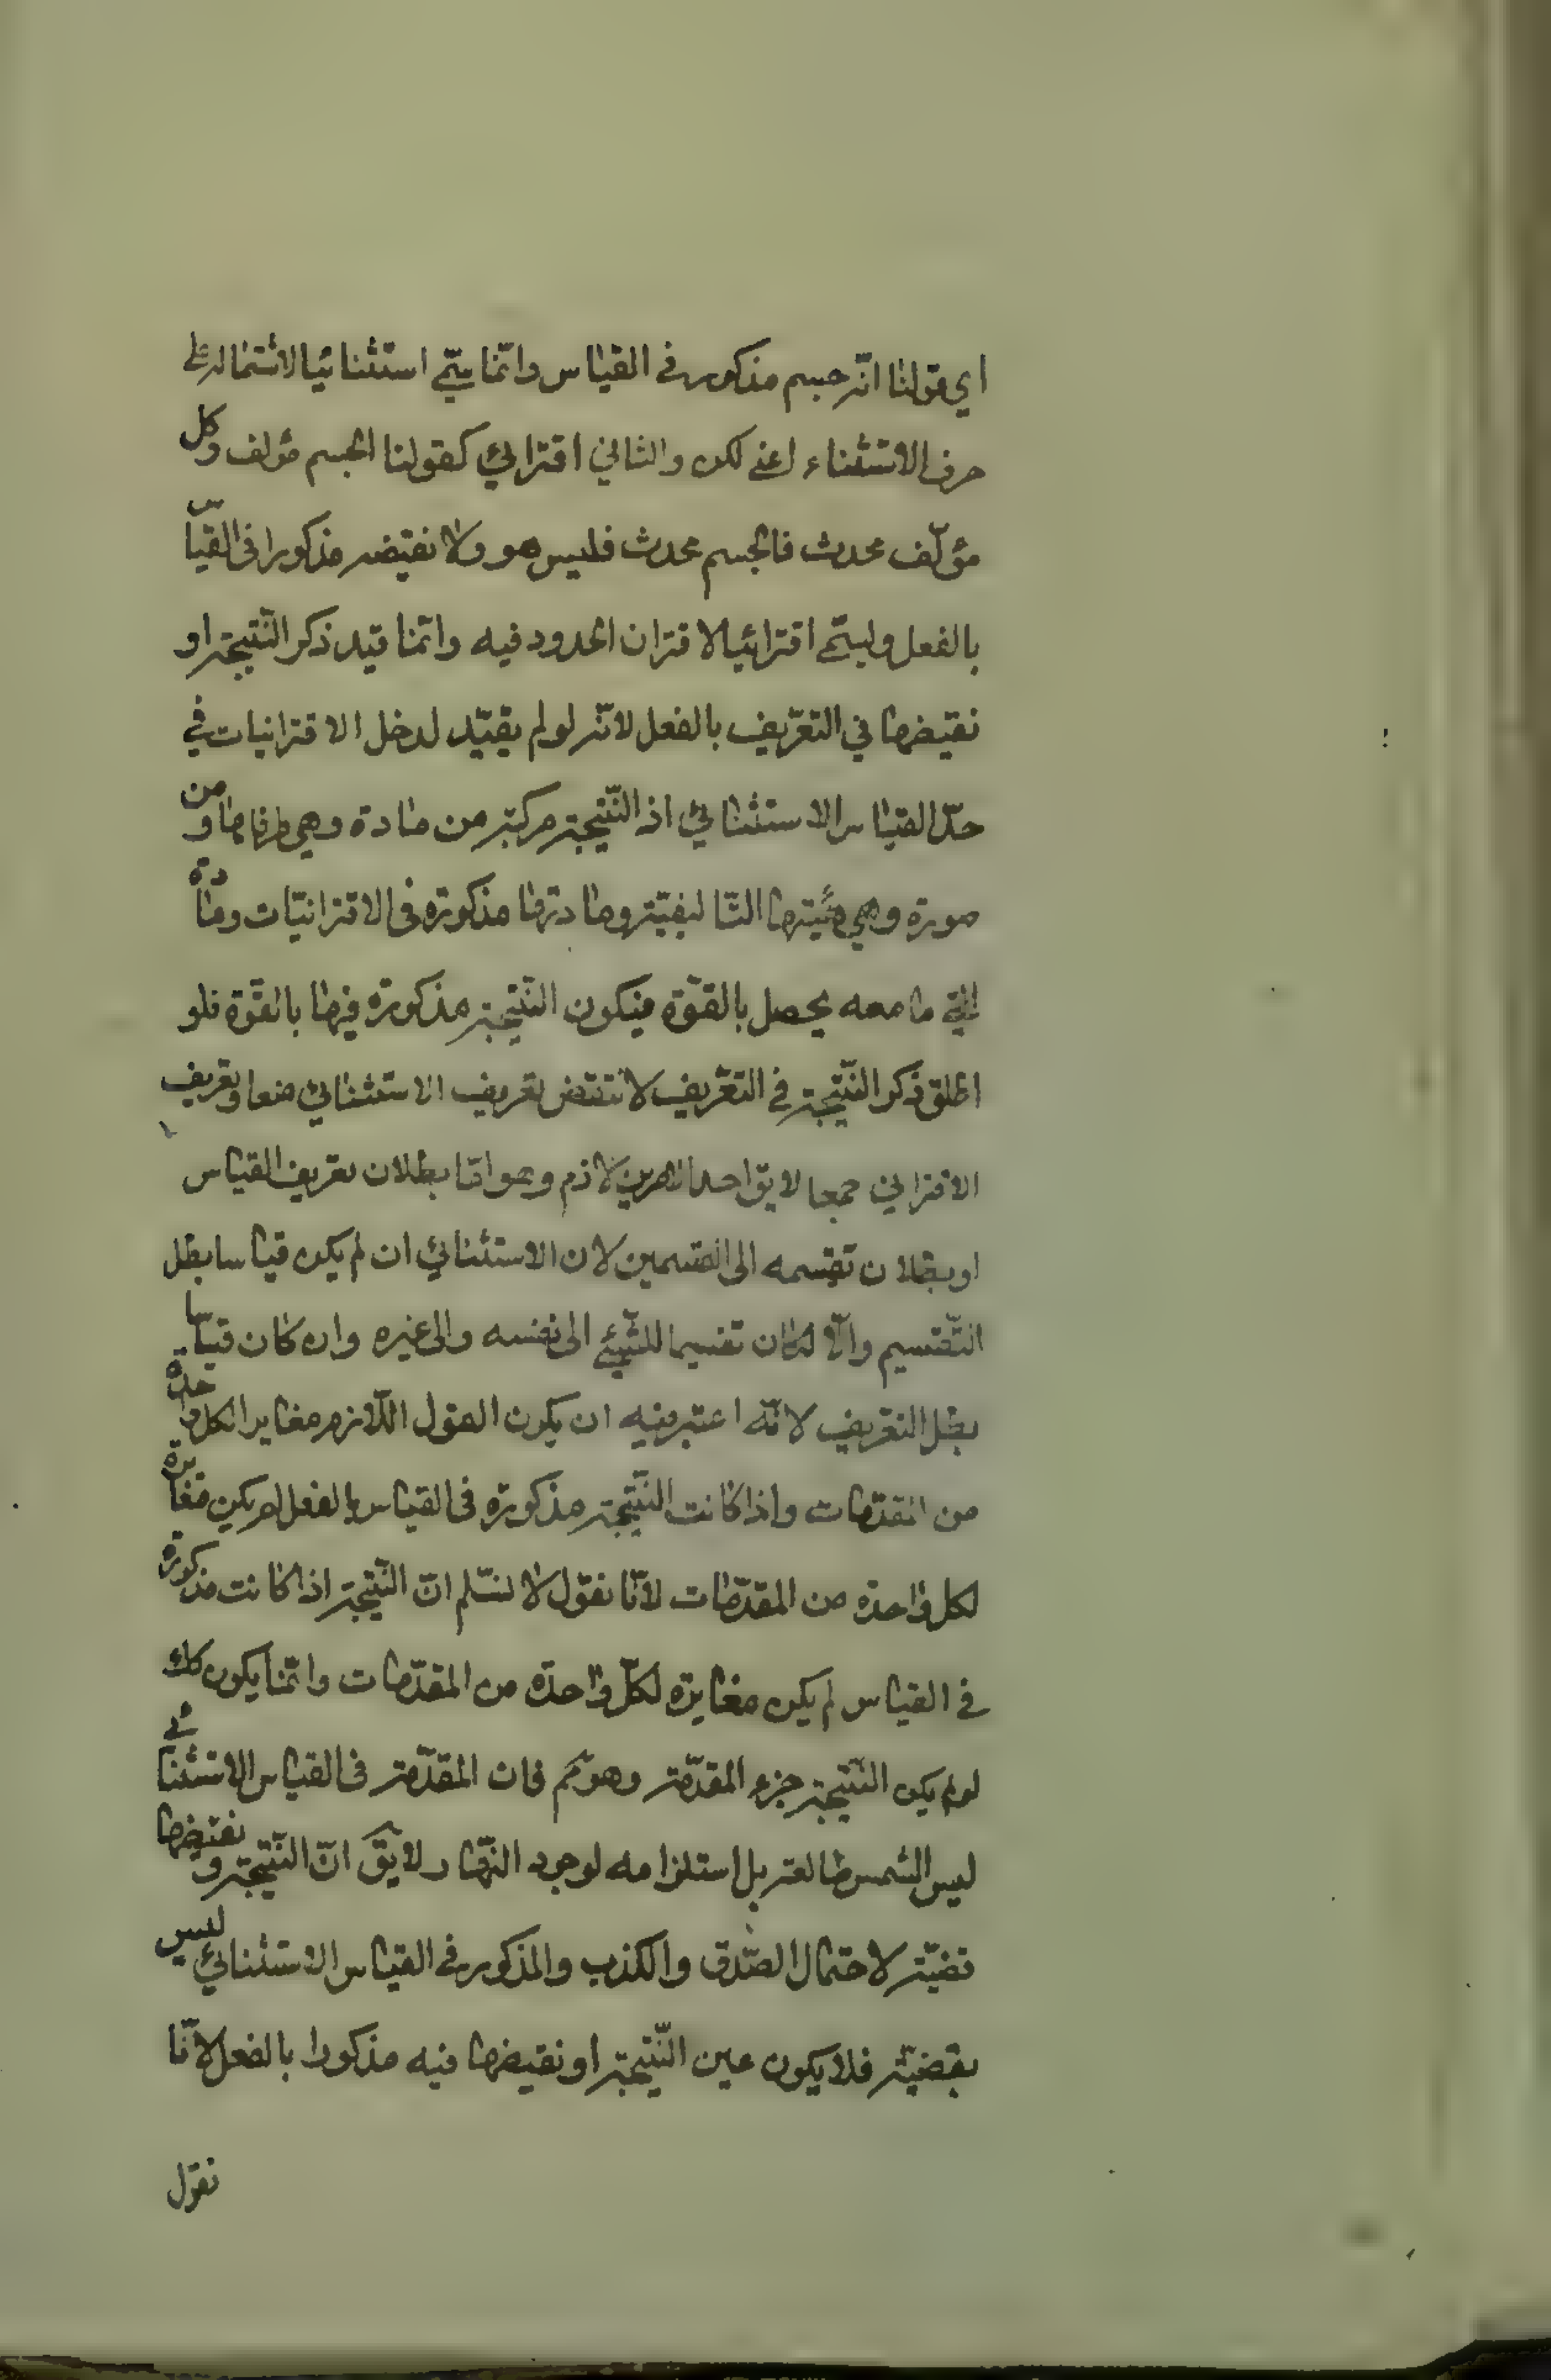 اي قولنا انّه جسم مذكور في القياس وانّما يسمّى استثنائيا لاشتماله على
حرف الاستثناء اعني لكن والثاني اقتراني كقولنا الجسم مؤلف وكل
مؤلّف محدث فالجسم محدث فليس هو ولا نقيضه مذكورا في القياس
بالفعل ويسمّى اقترانيا لاقتران الحدود فيه وانّما قيد ذكر النّتيجة او
نقيضها في التعريف بالفعل لانّه لو لم يقيّد لدخل الاقترانيات في
حدّ القياس الاستثنائي اذ النّتيجة مركبة من مادة وهي طرفاها ومن
صورة وهي هيئتها التّاليفيّة ومادتها مذكورة في الاقترانيّات ومادة
الشيء ما معه يحصل بالقوّة فيكون النّتيجة مذكورة فيها بالقوّة فلو
اطلق ذكر النّتيجة في التعريف لانتقض تعريف الاستثنائي منعا وتعريف
الاقتراني جمعا لا يق احد الامرين لازم وهو امّا بطلان تعريف القياس
او بطلان تقسيمه الى القسمين لان الاستثنائي ان لم يكن قياسا بطل
التّقسيم والّا لكان تقسيما للشّيئ الى نفسه والى غيره وان كان قياسا
بطل التعريف لانّه اعتبر فيه ان يكون القول اللّازم مغايرا لكل واحدة
من المقدّمات واذا كانت النّتيجة مذكورة في القياس بالفعل لم يكن مغايرة
لكل واحدة من المقدّمات لانّا نقول لا نسلّم انّ النّتيجة اذا كانت مذكورة
في القياس لم يكن مغايرة لكلّ واحدة من المقدّمات وانّما يكون كك
لو لم يكن النّتيجة جزء المقدّمة وهو مم فان المقدّمة في القياس الاستثنائي
ليس الشمس طالعة بل استلزامه لوجود النّهار لا يق انّ النّتيجة ونقيضها
قضيّة لاحتمال الصّدق والكذب والمذكور في القياس الاستثنائي ليس
بقضيّة فلا يكون عين النّتيجة او نقيضها فيه مذكورا بالفعل لانّا
نقول